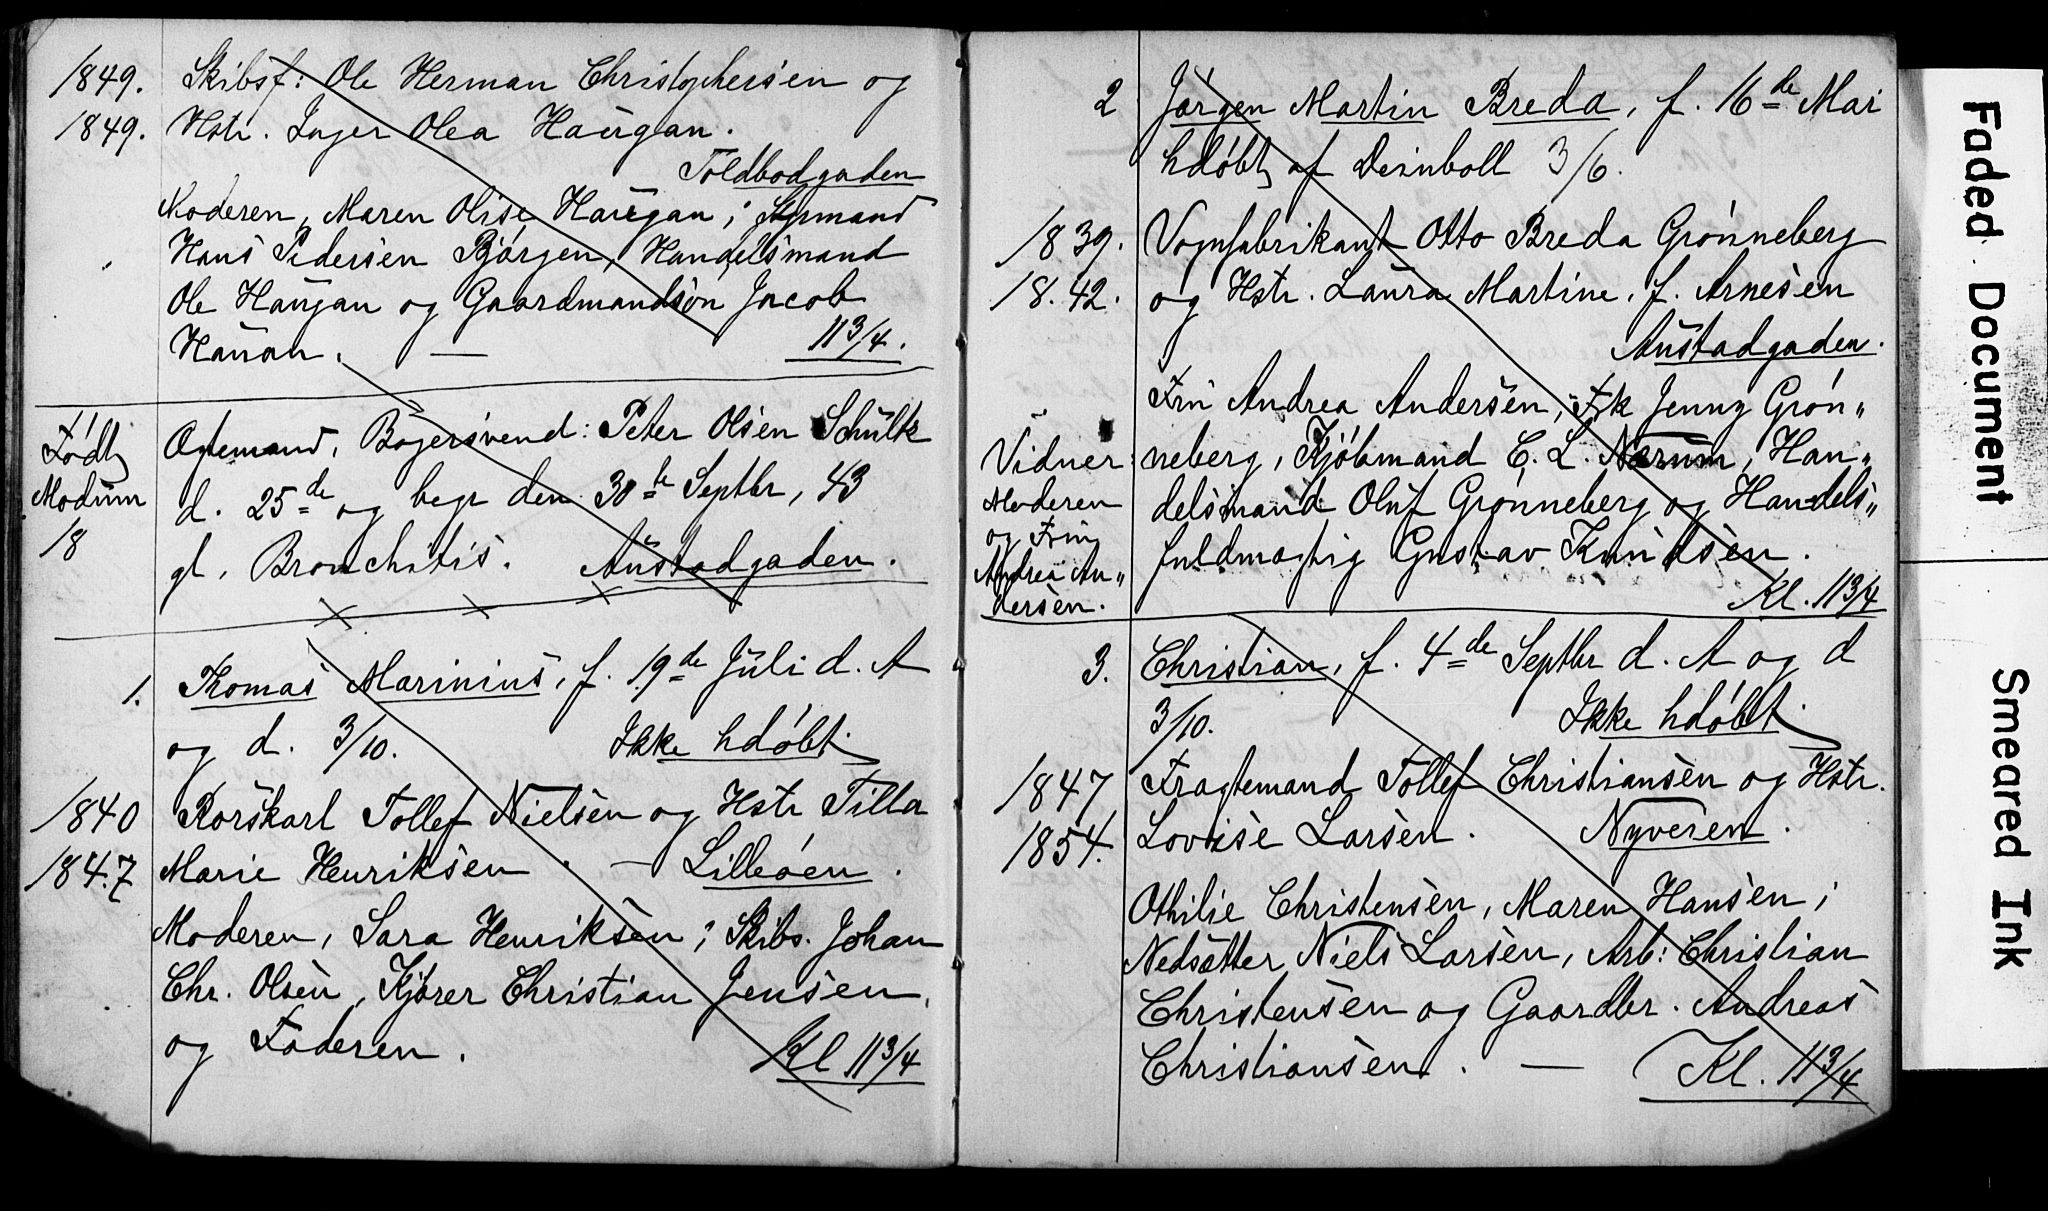 1849. Skibsf: Ole Herman Christophersen og
1849. Hstr. Inger Olea Haugan.
Toldbodgaden
Moderen, Maren Olise Haugan; Styrmand
Hans Pedersen Bjørgen, Handelsmand
Ole Haugan og Gaardmandsøn Jacob
Hauan. — 11 3/4.
Født Ægtemand, Bøgersvend: Peter Olsen Schultz
Modum d. 25de og begr den 30te Septbr, 43
18 gl, Bronchitis. Austadgaden.
1. Thomas Marinius, f. 19de Juli d. A
og d. 3/10. Ikke hdøbt
1840 Rorskarl Tollef Nielsen og Hstr Tilla
1847 Marie Henriksen. — Lilleøen.
Moderen, Sara Henriksen; Skibs. Johan
Chr. Olsen, Kjører Christian Jensen,
og Faderen. Kl 11 3/4
2 Jørgen Martin Breda, f. 16de Mai
hdøbt af Deinboll 3/6.
1839. Vognfabrikant Otto Breda Grønneberg
18.42. og Hstr. Laura Martine, f. Arnesen
Austadgaden.
Fru Andrea Andersen, Frk Jenny Grøn„
Vidner: neberg, Kjøbmand C. L. Nærum, Han„
Moderen delsmand Oluf Grønneberg og Handels„
og Fru fuldmægtig Gustav Knudsen.
Andrea An„
dersen. Kl. 11 3/4
3. Christian, f. 4de Septbr d. A og d
3/10. Ikke hdøbt
1847 Fragtemand Tollef Christiansen og Hstr.
1854. Lovise Larsen. Nyveien.
Othilie Christensen, Maren Hansen;
Nedsætter Niels Larsen, Arb: Christian
Christensen og Gaardbr. Andreas
Christiansen. — Kl. 11 3/4
Faded Document
Smeared Ink